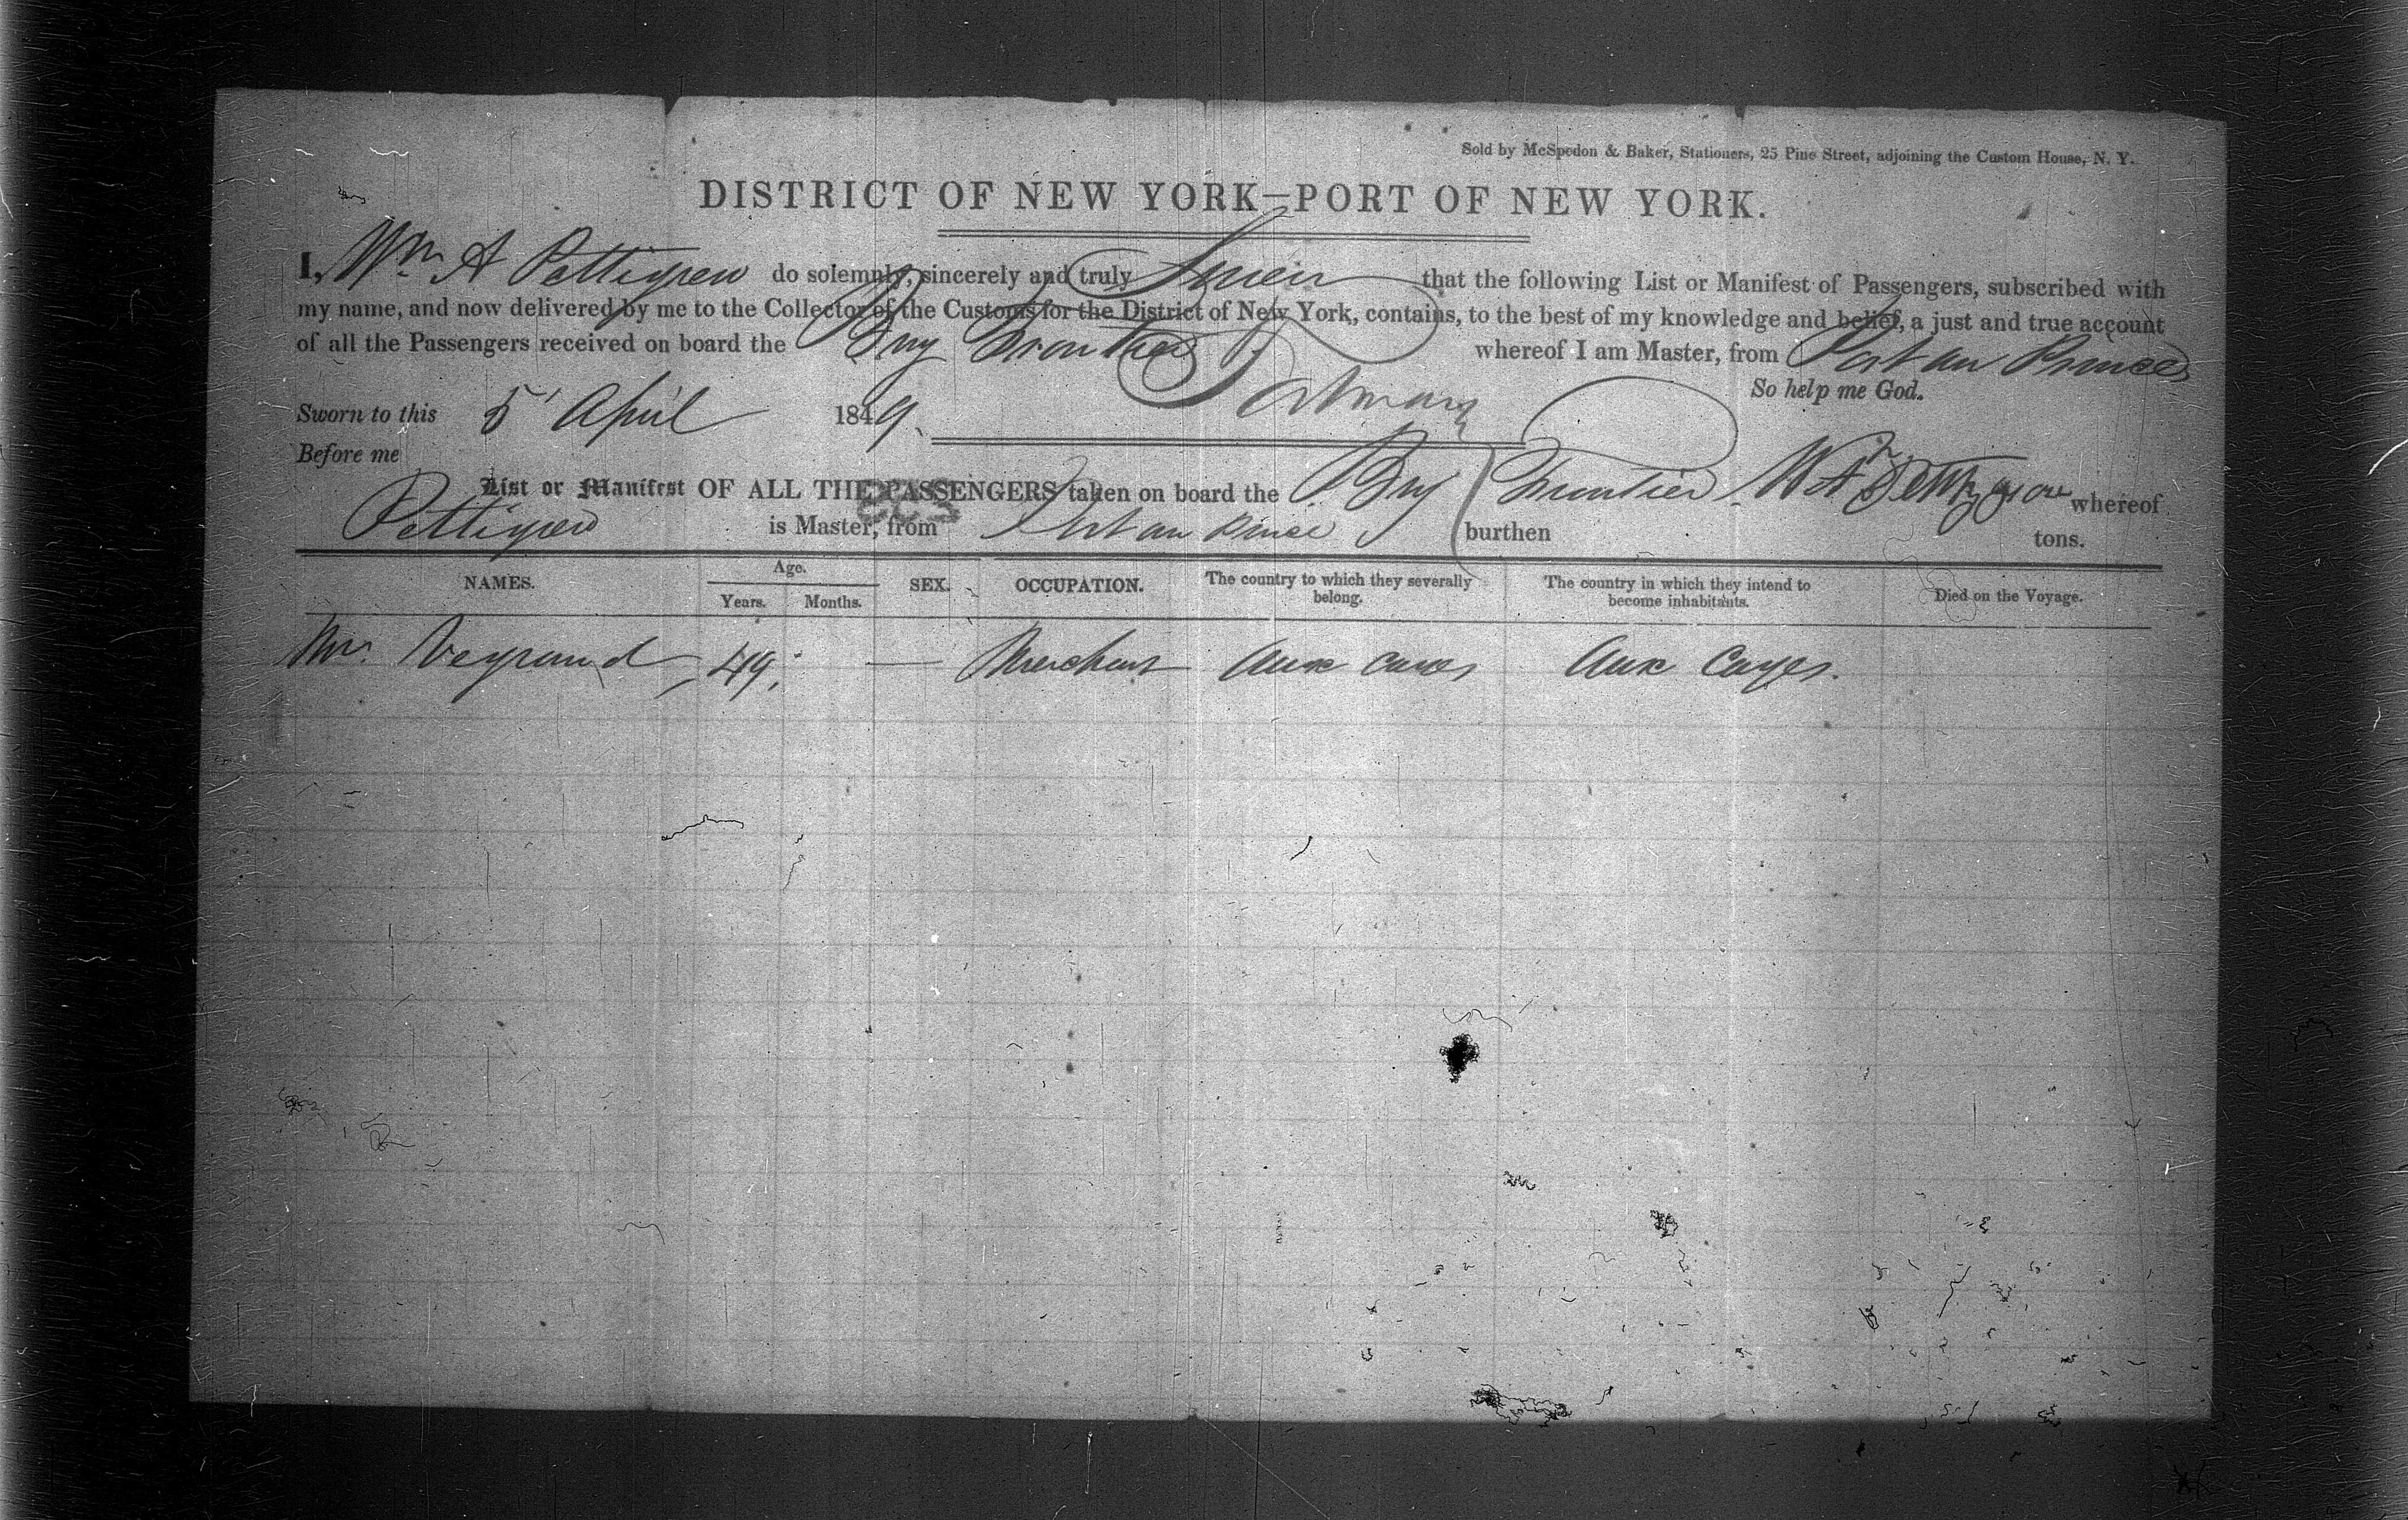 Sold by McSpedon & Baker, Stationers, 25 Pine Street, adjoining the Custom House, N. Y.
DISTRICT OF NEW YORK—PORT OF NEW YORK.
I, Wm A Pettigrew do solemnly, sincerely and truly Swear that the following List or Manifest of Passengers, subscribed with
my name, and now delivered by me to the Collector of the Customs for the District of New York, contains, to the best of my knowledge and belief, a just and true account
of all the Passengers received on board the Brig Frontier whereof I am Master, from Port au Prince
So help me God.
Sworn to this 5 April 1849.
Before me
List or Manifest OF ALL THE PASSENGERS taken on board the Brig Frontier Wm A Pettigrew whereof
Pettigrew is Master, from Port au Prince burthen tons.
NAMES. Age. Years. Months. SEX. OCCUPATION. The country to which they severally belong. The country in which they intend to become inhabitants. Died on the Voyage.
Mr. Veyrand 49 — Merchant Aux Cayes Aux Cayes.